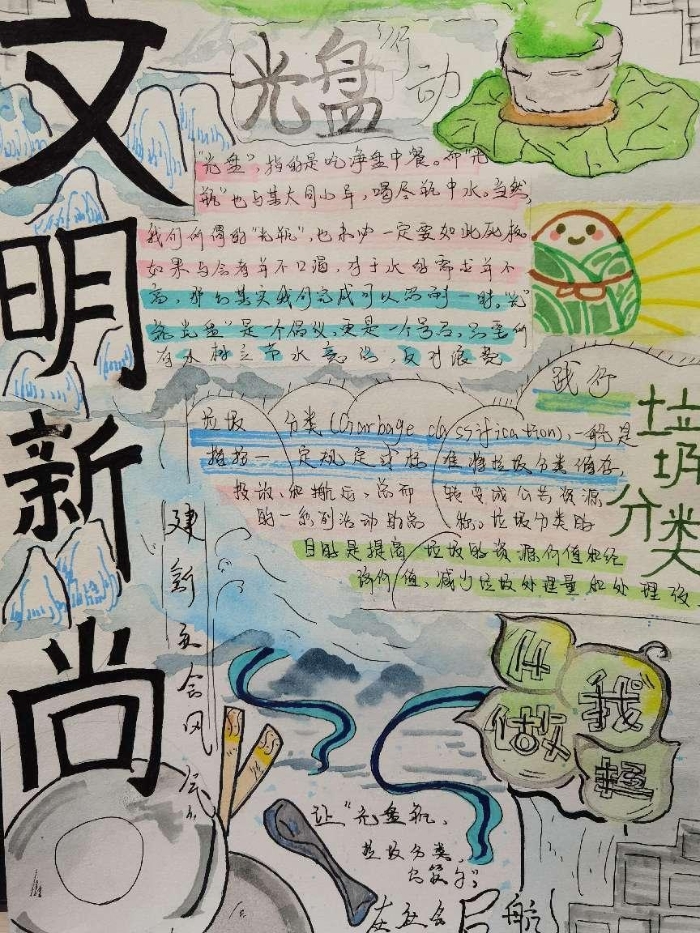 文明新尚
光盘行动
"光盘"，指的是吃净盘中餐。而"光
瓶"也与其大同小异，喝尽瓶中水。当然，
我们所谓的"光瓶"，也未必一定要如此死板
如果与会者并不口渴，对于水的需求并不
高，那么其实我们完成可以忍耐一时。"光
瓶光盘"是一个倡议，更是一个号召，只要所
有人树立节水意识，反对浪费
践行
垃圾分类
垃圾分类（Garbage classification），一般是
指按一定规定或标准将垃圾分类储存、
投放和搬运，从而转变成公共资源
的一系列活动的总称。垃圾分类的
目的是提高垃圾的资源价值和经
济价值，减少垃圾处理量和处理设
建新社会风气
从我做起
让"光盘瓶、
垃圾分类、
在社会启航